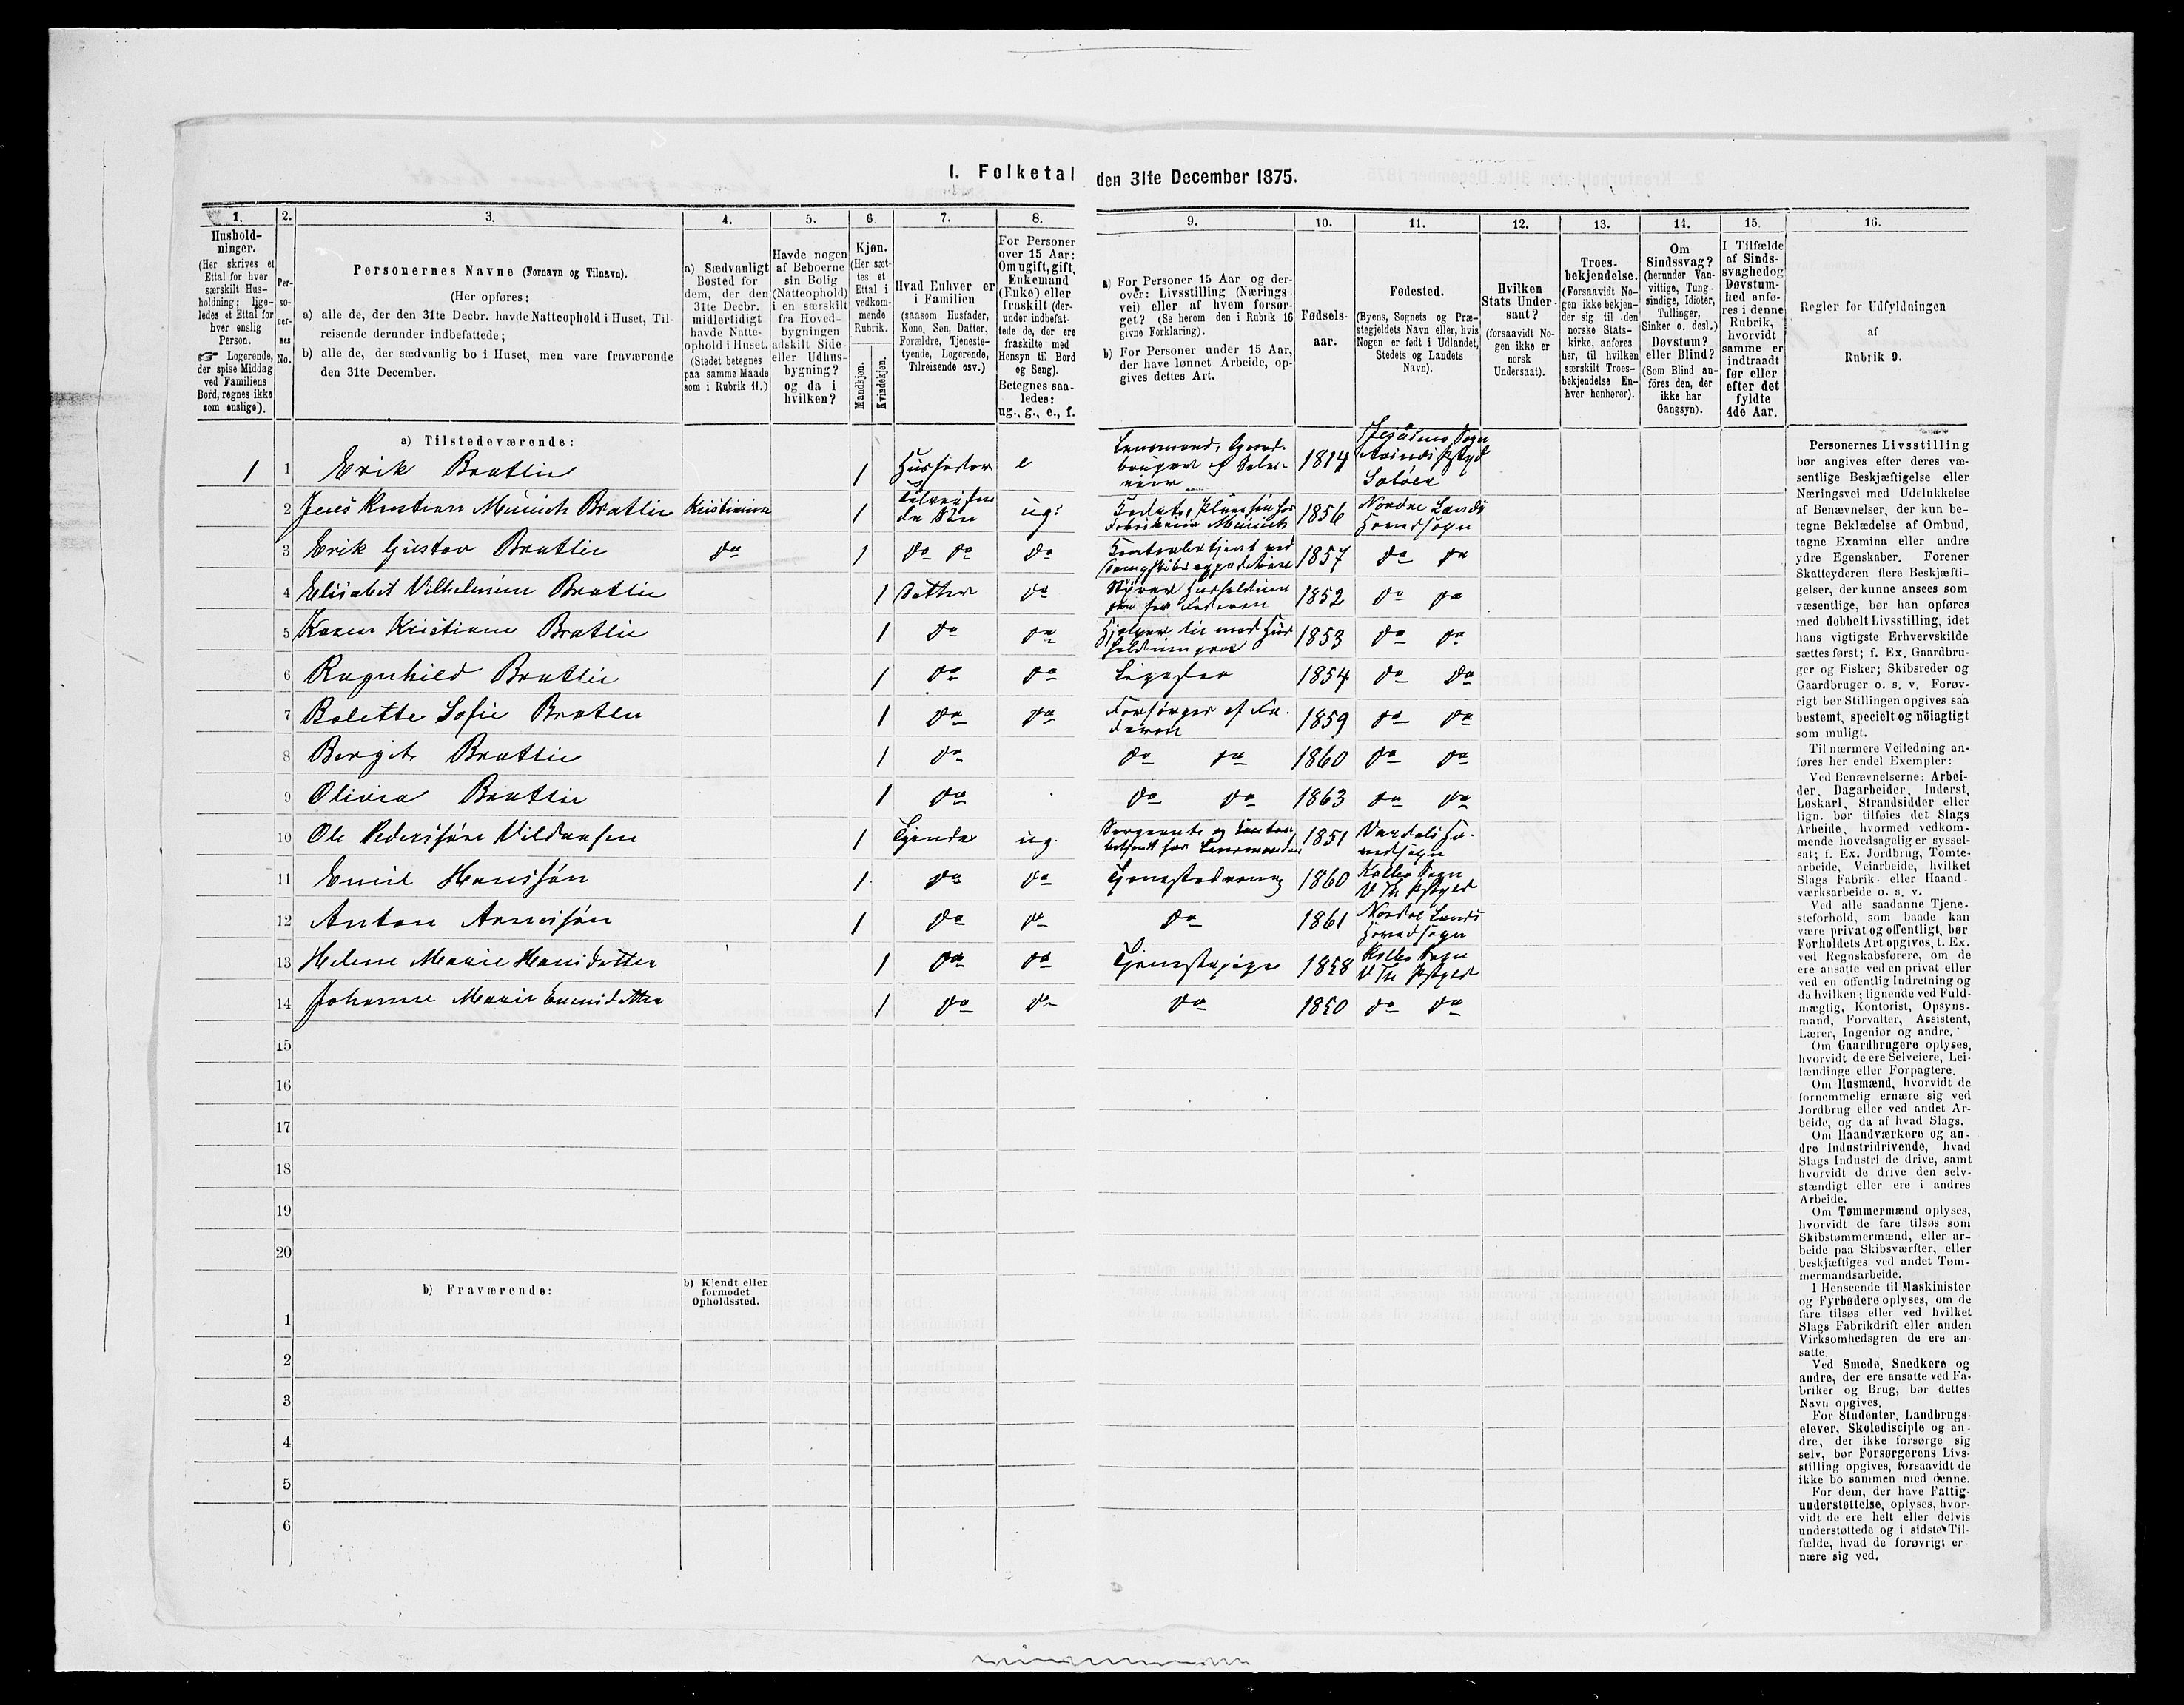 I. Folketal den 31te December 1875.
1.
Hushold-
ninger.
(Her skrives et
Ettal for hver
særskilt Hus-
holdning; lige-
ledes et Ettal for
hver enslig
Person.
☞ Logerende,
der spise Middag
ved Familiens
Bord, regnes ikke
som enslige).
2.
Per-
so-
ner-
nes
No.
3.
Personernes Navne (Fornavn og Tilnavn).
(Her opføres:
a) alle de, der den 31te Decbr. havde Natteophold i Huset, Til-
reisende derunder indbefattede;
b) alle de, der sædvanlig bo i Huset, men vare fraværende
den 31te December.
4.
a) Sædvanligt
Bosted for
dem, der den
31te Decbr.
midlertidigt
havde Natte-
ophold i Huset.
(Stedet betegnes
paa samme Maade
som i Rubrik 11.)
5.
Havde nogen
af Beboerne
sin Bolig
(Natteophold)
i en særskilt
fra Hoved-
bygningen
adskilt Side-
eller Udhus-
bygning?
og da i
hvilken?
6.
Kjøn.
(Her sæt-
tes et
Ettal i
vedkom-
mende
Rubrik.
Mandkjøn.
Kvindekjøn.
7.
Hvad Enhver er
i Familien
(saasom Husfader,
Kone, Søn, Datter,
Forældre, Tjeneste-
tyende, Logerende,
Tilreisende osv.)
8.
For Personer
over 15 Aar:
Om ugift, gift,
Enkemand
(Enke) eller
fraskilt (der-
under indbefat-
tede de, der ere
fraskilte med
Hensyn til Bord
og Seng).
Betegnes saa-
ledes:
ug., g., e., f.
9.
a) For Personer 15 Aar og der-
over: Livsstilling (Nærings-
vei) eller af hvem forsør-
get? (Se herom den i Rubrik 16
givne Forklaring).
b) For Personer under 15 Aar,
der have lønnet Arbeide, op-
gives dettes Art.
10.
Fødsels-
aar.
11.
Fødested.
(Byens, Sognets og Præ-
stegjeldets Navn eller, hvis
Nogen er født i Udlandet,
Stedets og Landets
Navn).
12.
Hvilken
Stats Under-
saat?
(forsaavidt No-
gen ikke er
norsk
Undersaat).
13.
Troes-
bekjendelse.
(Forsaavidt No-
gen ikke bekjen-
der sig til den
norske Stats-
kirke, anføres
her, til hvilken
særskilt Troes-
bekjendelse En-
hver henhører).
14.
Om
Sindssvag?
(herunder Van-
vittige, Tung-
sindige, Idioter,
Tullinger,
Sinker o. desl.)
Døvstum?
eller Blind?
(Som Blind an-
föres den, der
ikke har
Gangsyn).
15.
I Tilfælde
af Sinds-
svaghed og
Døvstum-
hed anfø-
res i denne
Rubrik,
hvorvidt
samme er
indtraadt
før eller
efter det
fyldte
4de Aar.
16.
Regler for Udfyldningen
af
Rubrik 9.
a) Tilstedeværende:
1 1 Erik Bratlie 1 Husfader e Lensmand, Gaard-
bruger og Selv-
eier 1814 Sogn
2 Jens Kristian Minich Bratlie Kristiania 1 Tilreisen
de Søn ug. 1856 Nordre Lands
Hovedsogn
3 Erik Gustav Bratlie do 1 do do do 1857 do do
4 Elisabet Vilhelmine Bratlie 1 Datter do Styrer Husholdnin
gen for Faderen 1852 do do
5 Karen Kristiane Bratlie 1 do do Hjelper til med Hus
holdningen 1853 do do
6 Ragnhild Bratlie 1 do do Ligesaa 1854 do do
7 Bolette Sofie Bratlie 1 do do Forsörges af Fa-
deren 1859 do do
8 Bergit Bratlie 1 do do do 1860 do do
9 Olivia Bratlie 1 do do do 1863 do do
10 Ole Pederssøn 1 Tjener ug. Sergeant og Kontor
betjent hos Lensmanden 1851 Vardals Ho-
vedsogn
11 Emil Hanssøn 1 do do Tjenestedreng 1860 Kolbo Sogn
V Th Pstgld
12 Anton Arnessøn 1 do do do 1861 Nordre Lands
Hovedsogn
13 Helene Marie Hansdatter 1 do do Tjenestepige 1858 Kolbo Sogn
V Th Pstgld
14 Johanne Marie Evensdatter 1 do do do 1850 do do
15
16
17
18
19
20
b) Fraværende:
b) Kjendt eller
formodet
Opholdssted.
1
2
3
4
5
6
Personernes Livsstilling
bør angives efter deres væ-
sentlige Beskjæftigelse eller
Næringsvei med Udelukkelse
af Benævnelser, der kun be-
tegne Beklædelse af Ombud,
tagne Examina eller andre
ydre Egenskaber. Forener
Skatteyderen flere Beskjæfti-
gelser, der kunne ansees som
væsentlige, bør han opføres
med dobbelt Livsstilling, idet
hans vigtigste Erhvervskilde
sættes først; f. Ex. Gaardbru-
ger og Fisker; Skibsreder og
Gaardbruger o. s. v. Forøv-
rigt bør Stillingen opgives saa
bestemt, specielt og nöiagtigt
som muligt.
Til nærmere Veiledning an-
føres her endel Exempler:
Ved Benævnelserne: Arbei-
der, Dagarbeider, Inderst,
Løskarl, Strandsidder eller
lign. bør tilføies det Slags
Arbeide, hvormed vedkom-
mende hovedsagelig er syssel-
sat; f. Ex. Jordbrug, Tomte-
arbeide, Veiarbeide, hvilket
Slags Fabrik- eller Haand-
værksarbeide o. s. v.
Ved alle saadanne Tjene-
steforhold, som baade kan
være privat og offentligt, bør
Forholdets Art opgives, t. Ex.
ved Regnskabsførere, om de
ere ansatte ved en privat eller
ved en offentlig Indretning og
da hvilken; lignende ved Fuld-
mægtig, Kontorist, Opsyns-
mand, Forvalter, Assistent,
Lærer, Ingeniør og andre.
Om Gaardbrugere oplyses,
hvorvidt de ere Selveiere, Lei-
lændinge eller Forpagtere.
Om Husmænd, hvorvidt de
fornemmelig ernære sig ved
Jordbrug eller ved andet Ar-
beide, og da af hvad Slags.
Om Haandværkere og an-
dre Industridrivende, hvad
Slags Industri de drive, samt
hvorvidt de drive den selv-
stændigt eller ere i andres
Arbeide.
Om Tømmermænd oplyses,
hvorvidt de fare tilsøs som
Skibstømmermænd, eller ar-
beide paa Skibsværfter, eller
beskjæftiges ved andet Tøm-
mermandsarbeide.
I Henseende til Maskinister
og Fyrbødere oplyses, om de
fare tilsøs eller ved hvilket
Slags Fabrikdrift eller anden
Virksomhedsgren de ere an-
satte.
Ved Smede, Snedkere og
andre, der ere ansatte ved Fa-
briker og Brug, bør dettes
Navn opgives.
For Studenter, Landbrugs-
elever, Skoledisciple og an-
dre, der ikke forsørge sig
selv, bør Forsørgerens Livs-
stilling opgives, forsaavidt de
ikke bo sammen med denne.
For dem, der have Fattig-
understøttelse, oplyses, hvor-
vidt de ere helt eller delvis
understøttede og i sidste Til-
fælde, hvad de forøvrigt er-
nære sig ved.